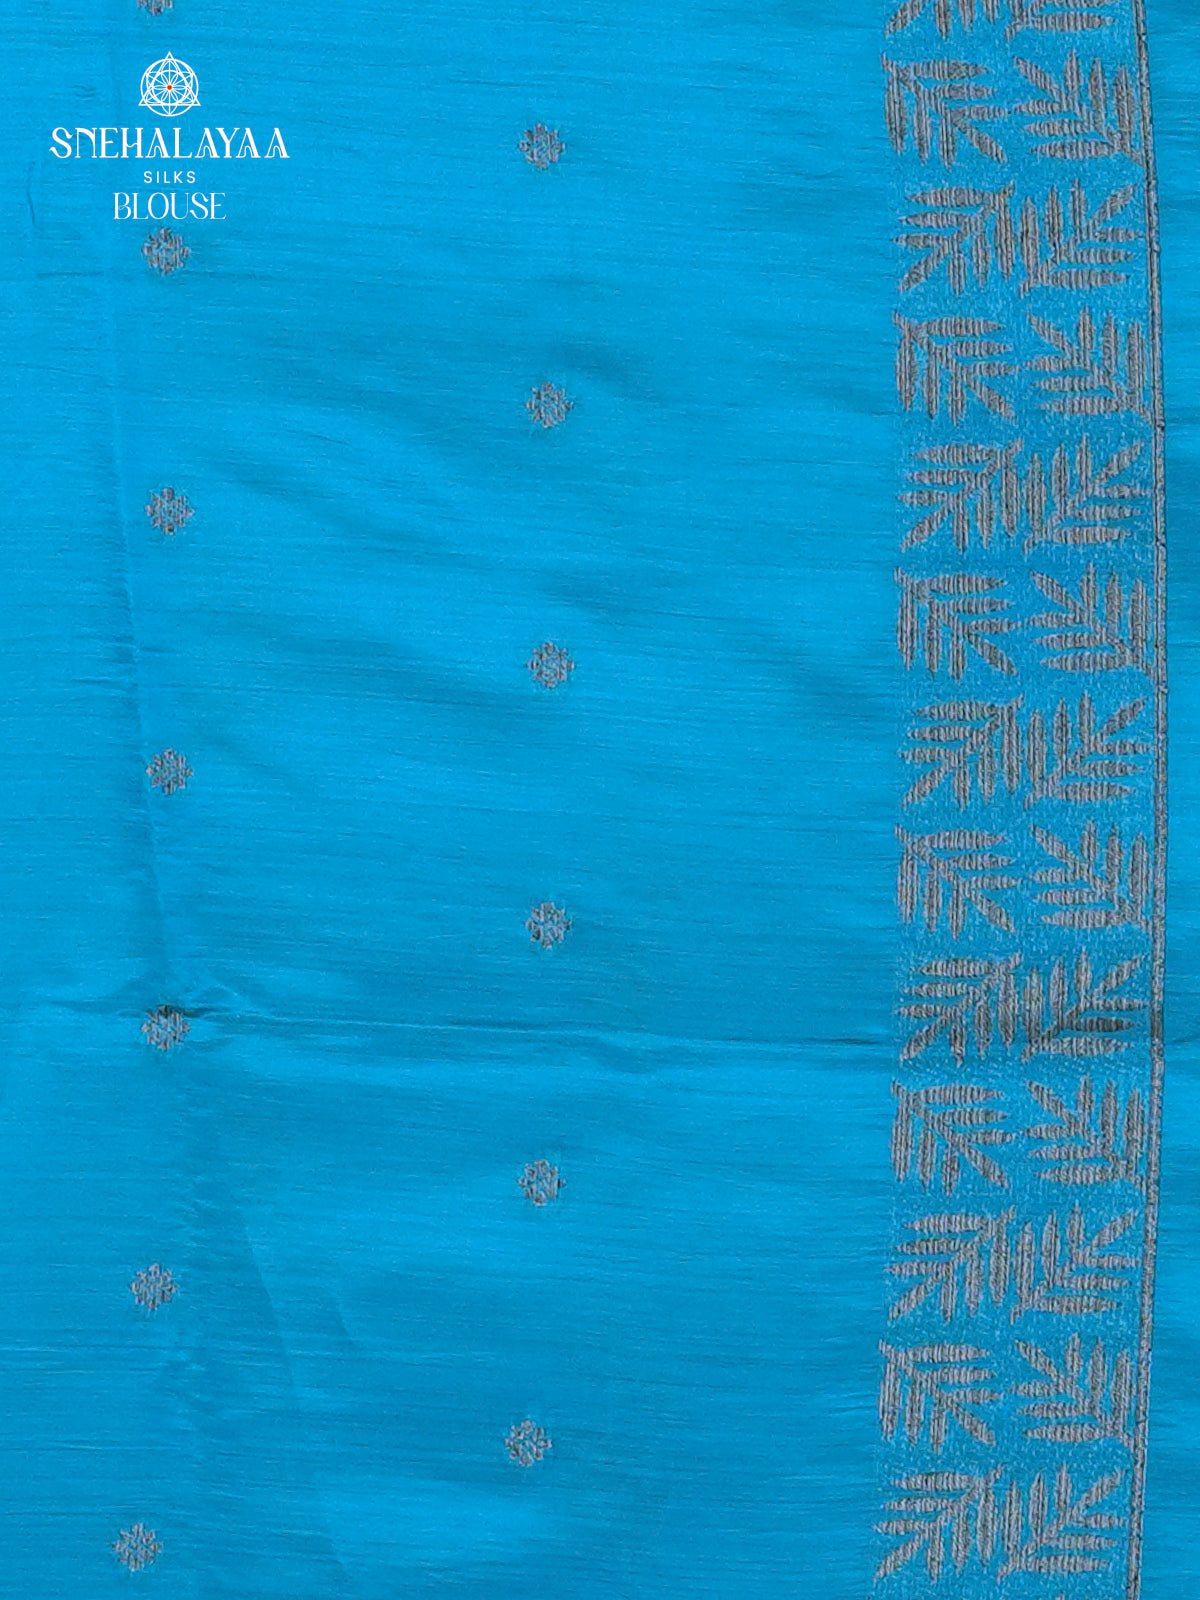 SNEHALAYAA
SILKS
BLOUSE